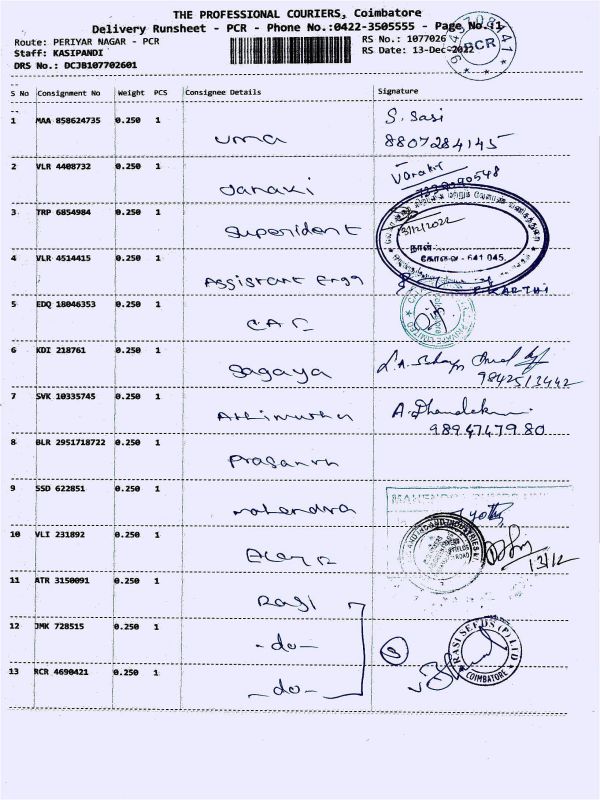 THE PROFESSIONAL COURIERS, Coimbatore
Delivery Runsheet - PCR - Phone No.:0422-3505555 - Page No.:1
Route: PERIYAR NAGAR - PCR
RS No.: 1077026
Staff: KASIPANDI
RS Date: 13-Dec-2022
DRS No.: DCJB107702601
PCR
S No Consignment No Weight PCS Consignee Details Signature
1 MAA 858624735 0.250 1 uma S. Sasi
8807284145
2 VLR 4408732 0.250 1 Janaki
3 TRP 6854984 0.250 1 Superident
13/12/2022
நாள்
கோவை - 641 045.
4 VLR 4514415 0.250 1 Assistant Engg
P.KARTHI
5 EDQ 18046353 0.250 1
6 KDI 218761 0.250 1 Sagaya
9842513442
7 SVK 10335745 0.250 1 Athimuthu A. Dhanalakmi
9894747980
8 BLR 2951718722 0.250 1 Prasanth
9 SSD 622851 0.250 1 mahendra
MAHENDRA PUMPS
Jyothy
10 VLI 231892 0.250 1
13/12
11 ATR 3150091 0.250 1 Rasi
12 JMK 728515 0.250 1 -do-
3
RASI SEEDS (P) LTD
COIMBATORE
13 RCR 4690421 0.250 1 -do-